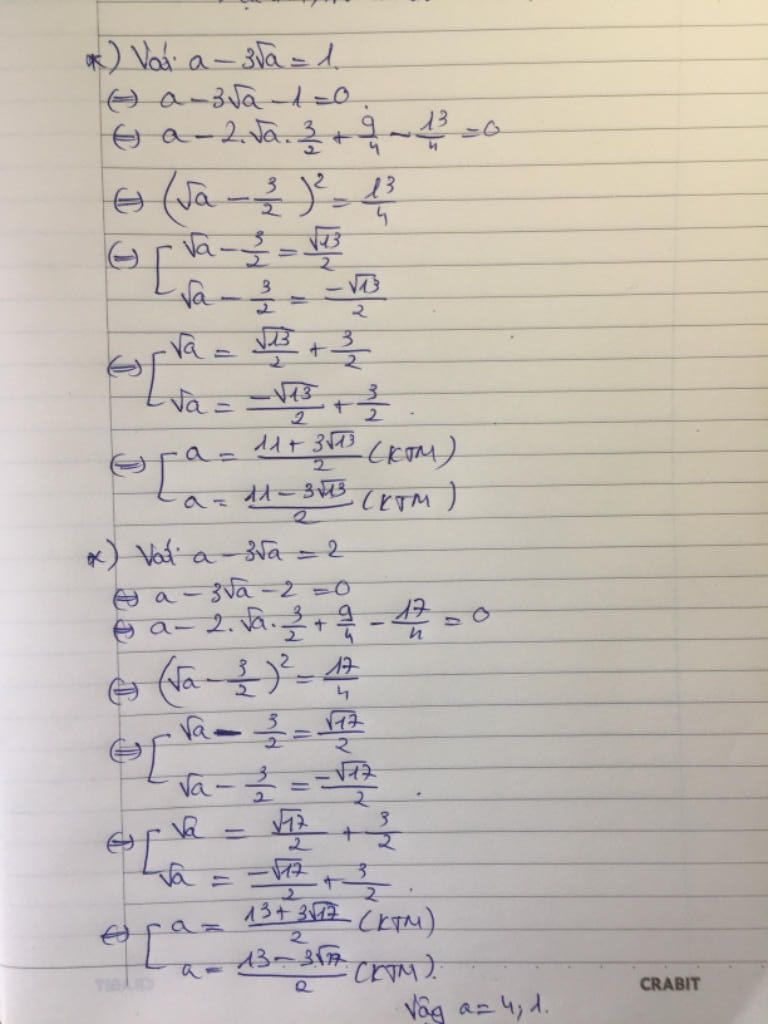 *) Với a - 3√a = 1.
⇔ a - 3√a - 1 = 0.
⇔ a - 2.√a . 3/2 + 9/4 - 13/4 = 0
⇔ (√a - 3/2)² = 13/4
⇔ [ √a - 3/2 = √13/2
√a - 3/2 = -√13/2
⇔ [ √a = √13/2 + 3/2
√a = -√13/2 + 3/2.
⇔ [ a = (11 + 3√13)/2 (KTM)
a = (11 - 3√13)/2 (KTM)
*) Với a - 3√a = 2
⇔ a - 3√a - 2 = 0
⇔ a - 2.√a . 3/2 + 9/4 - 17/4 = 0
⇔ (√a - 3/2)² = 17/4
⇔ [ √a - 3/2 = √17/2
√a - 3/2 = -√17/2.
⇔ [ √a = √17/2 + 3/2
√a = -√17/2 + 3/2.
⇔ [ a = (13 + 3√17)/2 (KTM)
a = (13 - 3√17)/2 (KTM).
Vậy a = 4, 1.
CRABIT